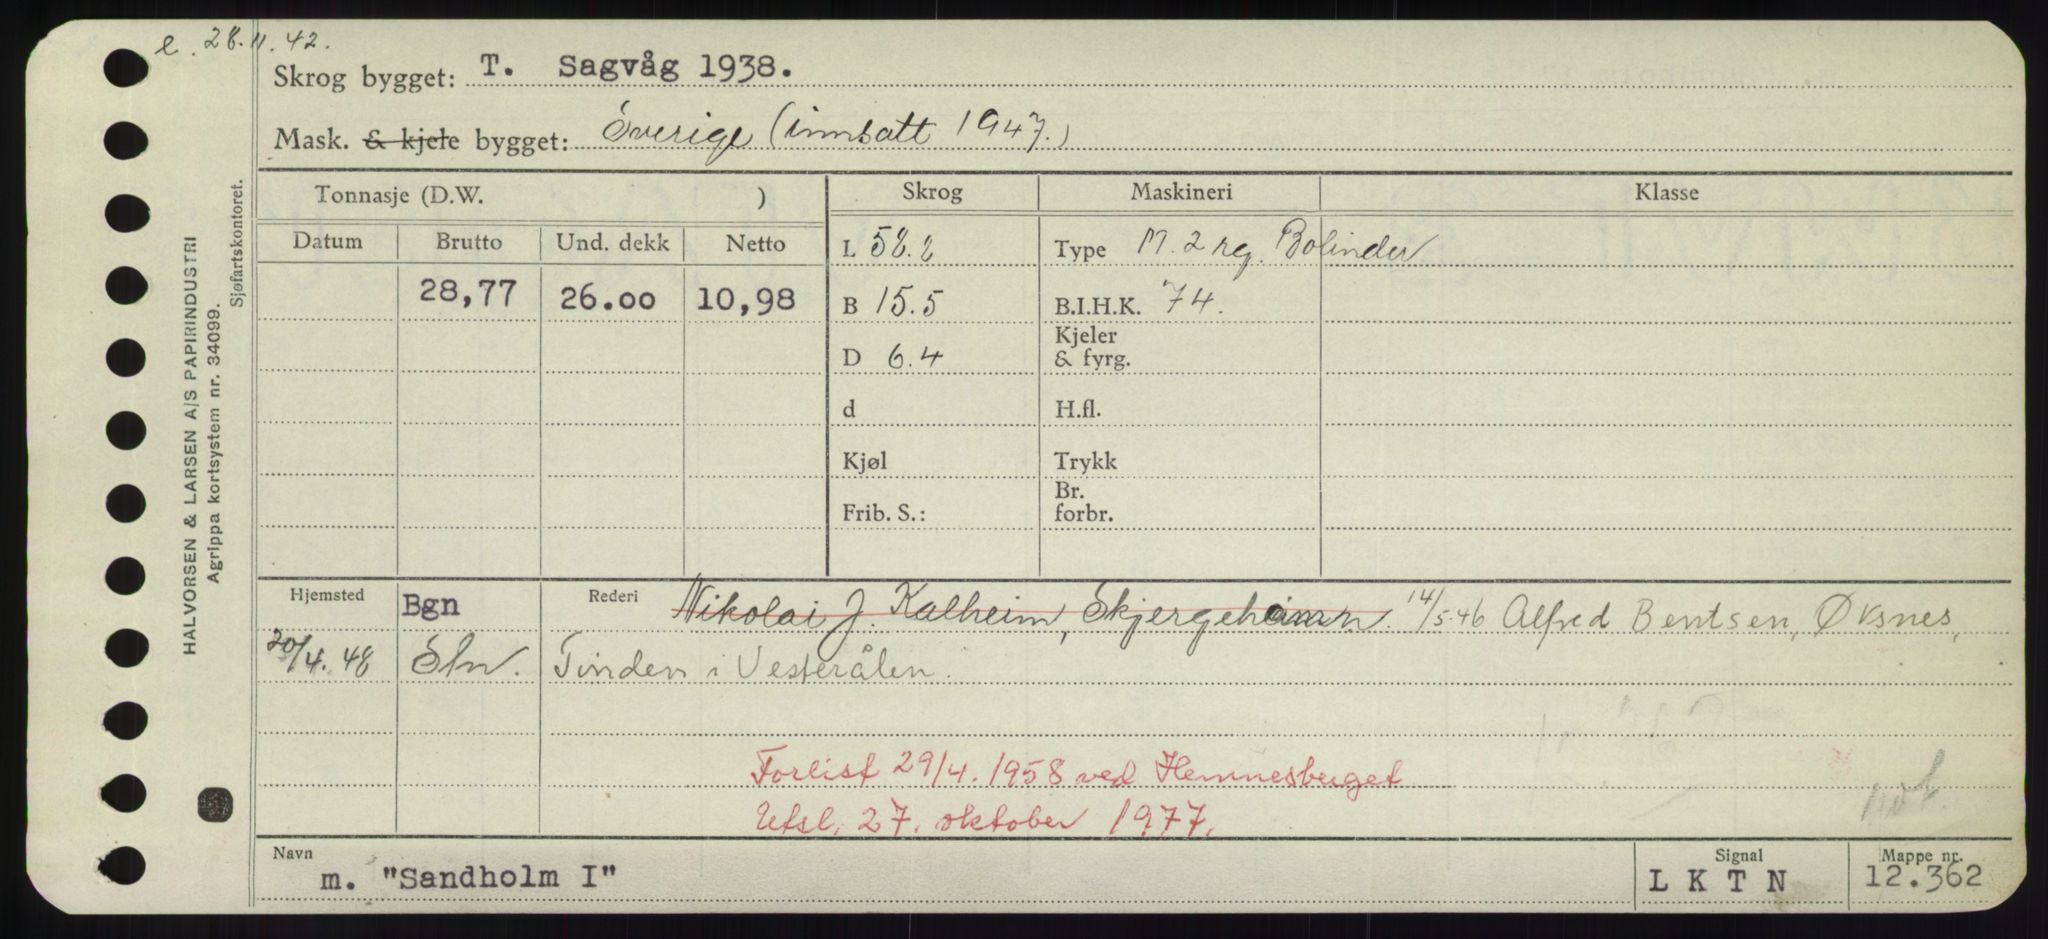 e. 28.11.42.
Skrog bygget: T. Sagvåg 1938.
Mask. & kjele bygget: Sverige (innsatt 1947.)
Tonnasje (D.W. ) Skrog Maskineri Klasse
Datum Brutto Und. dekk Netto L 58.2 Type M. 2 sg. Bolinder
28,77 26.00 10,98 B 15.5 B.I.H.K. 74.
D 6.4 Kjeler & fyrg.
d H.fl.
Kjøl Trykk
Frib. S.: Br. forbr.
Hjemsted Bgn Rederi Nikolai J. Kalheim, Skjergehamn. 14/5.46 Alfred Bentsen, Øksnes,
20/4.48 Slv. Tinden i Vesterålen.
Forlist 29/4.1958 ved Hemnesberget
Utsl. 27. oktober 1977.
Navn Signal Mappe nr.
m. "Sandholm I" L K T N 12.362
HALVORSEN & LARSEN A/S PAPIRINDUSTRI
Agrippa kortsystem nr. 34099.
Sjøfartskontoret.